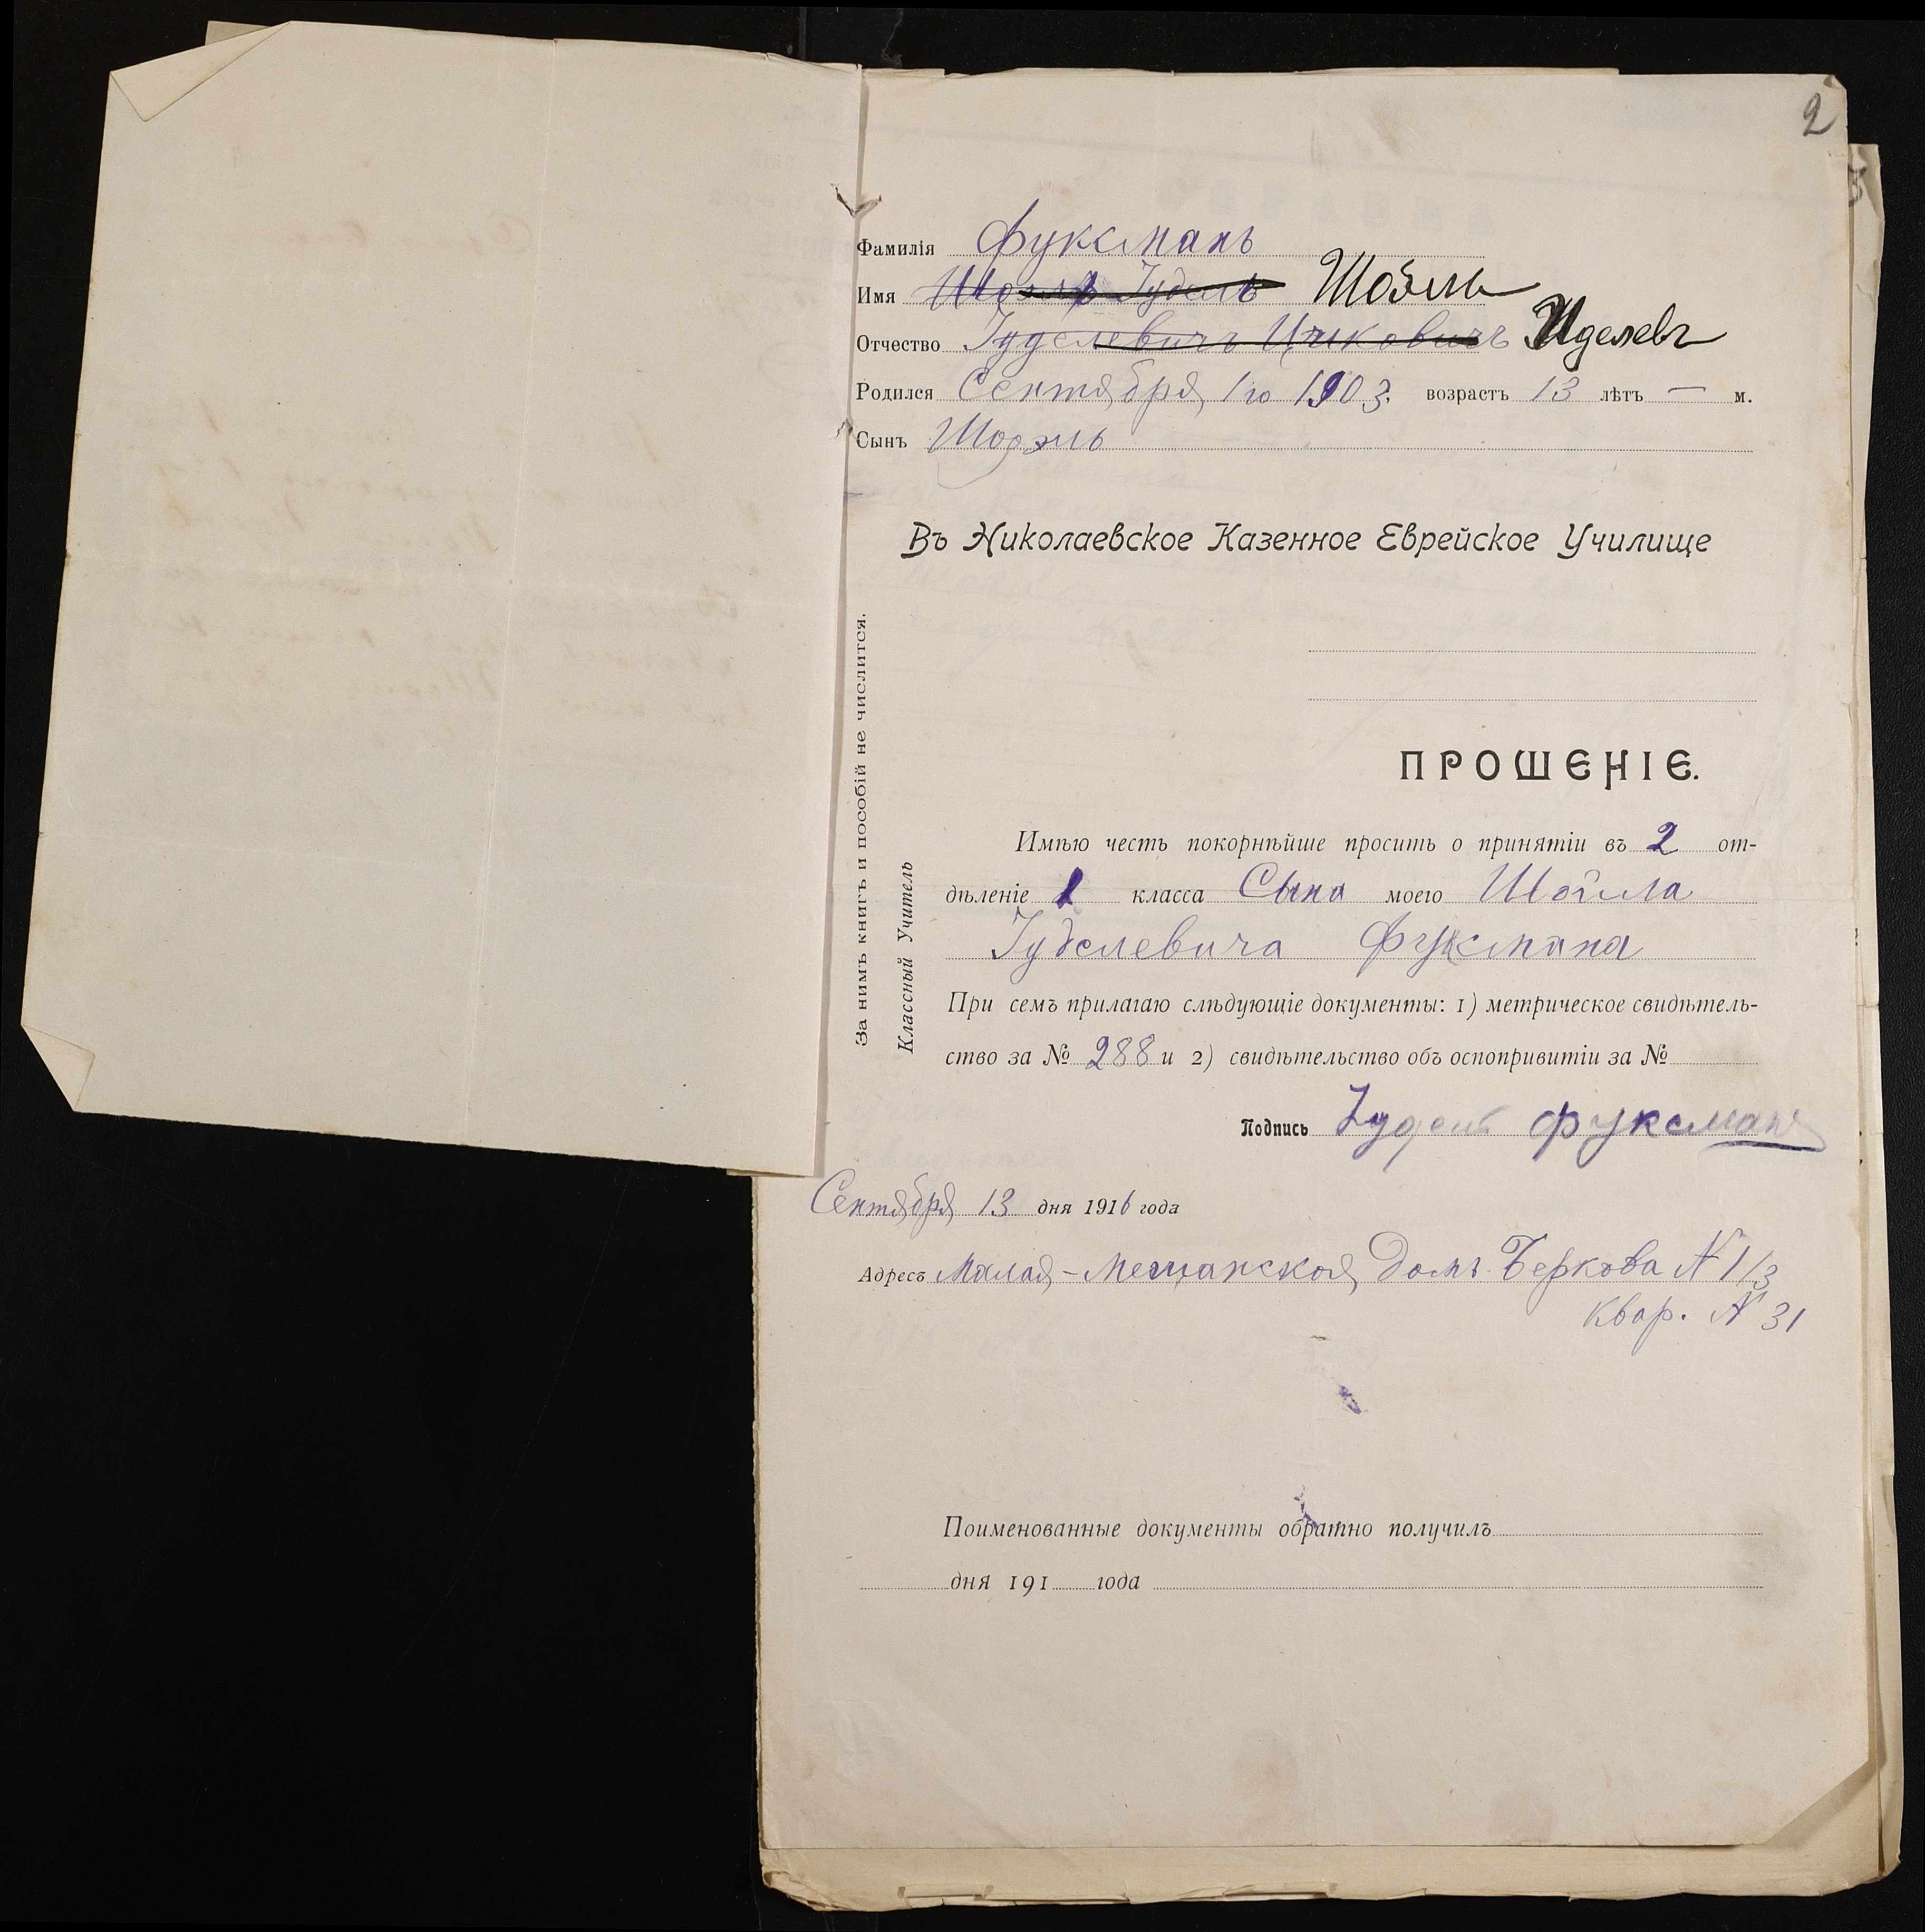 2
Фамилія Фуксманъ
Имя Шоэль Іудель Шоэль
Отчество Іуделевичъ Ицковичъ Иделевъ
Родился Сентября 1го 1903. возрастъ 13 лѣтъ — м.
Сынъ Шоэль
Въ Николаевское Казенное Еврейское Училище
ПРОШЕНІЕ.
Имѣю честь покорнѣйше просить о принятіи въ 2 от-
дѣленіе 1 класса Сына моего Шоила
Іуделевича Фуксмана
При семъ прилагаю слѣдующіе документы: 1) метрическое свидѣтель-
ство за № 288 и 2) свидѣтельство объ оспопривитіи за №
Подпись Іудель Фуксманъ
Сентября 13 дня 1916 года
Адресъ Малая-Мещанская, Домъ Беркова № 1/3
квар. № 31
Поименованные документы обратно получилъ
дня 191 года
За нимъ книгъ и пособій не числится.
Классный Учитель